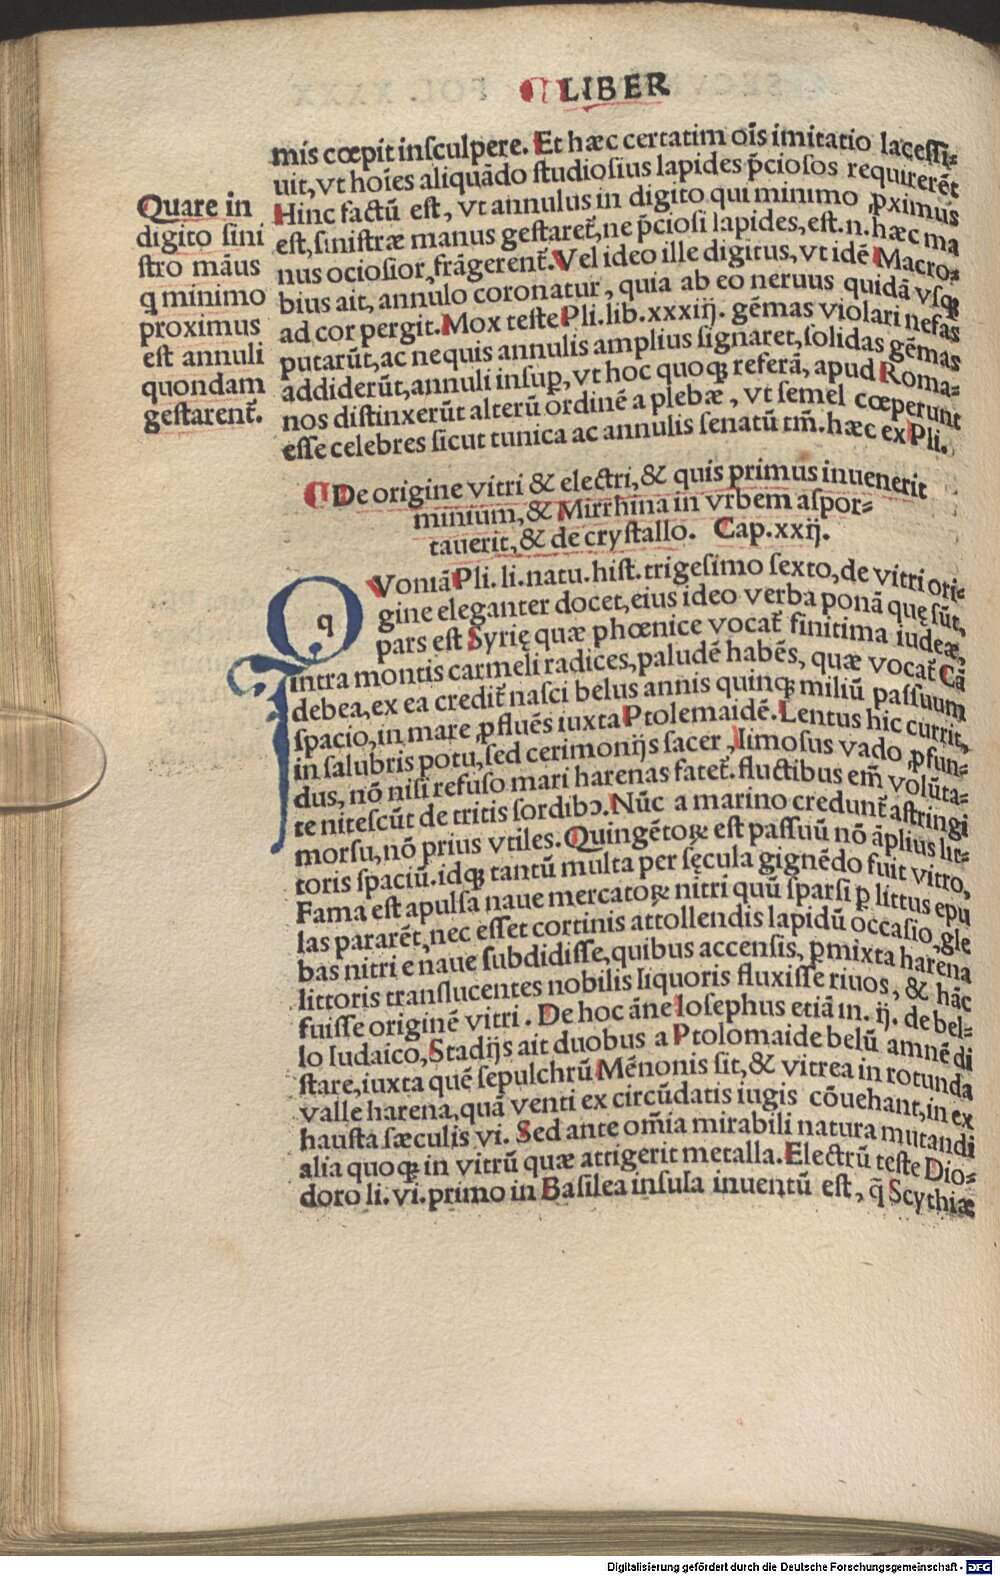 LIBER
mis cœpit insculpere. Et hæc certatim oīs imitatio lacessi⸗
uit, vt hoīes aliquādo studiosius lapides p̄ciosos requirerēt
Hinc factū est, vt annulus in digito qui minimo ꝓximus
est, sinistræ manus gestaret᷑, ne p̄ciosi lapides, est .n. hæc ma
nus ociosior, frāgerent᷑. Vel ideo ille digitus, vt idē Macro⸗
bius ait, annulo coronatur, quia ab eo neruus quidā vsqꝫ
ad cor pergit. Mox teste Pli. lib. xxxiij. gēmas violari nefas
putarūt, ac ne quis annulis amplius signaret, solidas gēmas
addiderūt, annuli insuꝑ, vt hoc quoqꝫ referā, apud Roma⸗
nos distinxerūt alterū ordinē a plebæ, vt semel cœperunt
esse celebres sicut tunica ac annulis senatū tm̄. hæc ex Pli.
Quare in
digito sini
stro māus
q minimo
proximus
est annuli
quondam
gestarent᷑.
De origine vitri & electri, & quis primus inuenerit
minium, & Mirrhina in vrbem aspor⸗
tauerit, & de crystallo. Cap. xxij.
q Voniā Pli. li. natu. hist. trigesimo sexto, de vitri ori⸗
gine eleganter docet, eius ideo verba ponā quę sūt,
pars est Syrię quæ phœnice vocat᷑ finitima iudeæ,
intra montis carmeli radices, paludē habēs, quæ vocat᷑ Cā
debea, ex ea credit᷑ nasci belus annis quinqꝫ miliū passuum
spacio, in mare ꝓfluēs iuxta Ptolemaidē. Lentus hic currit,
in salubris potu, sed cerimonijs sacer, limosus vado ꝓfun⸗
dus, nō nisi refuso mari harenas fatet᷑. fluctibus em̄ volūta⸗
te nitescūt de tritis sordibꝰ. Nūc a marino credunt᷑ astringi
morsu, nō prius vtiles. Quingētoꝝ est passuū nō āplius lit⸗
toris spaciū. idqꝫ tantū multa per sęcula gignēdo fuit vitro,
Fama est apulsa naue mercatoꝝ nitri quū sparsi ꝑ littus epu
las pararēt, nec esset cortinis attollendis lapidū occasio, gle
bas nitri e naue subdidisse, quibus accensis, ꝑmixta harena
littoris translucentes nobilis liquoris fluxisse riuos, & hāc
fuisse originē vitri. De hoc āne Iosephus etiā in. ij. de bel⸗
lo Iudaico, Stadijs ait duobus a Ptolomaide belū amnē di
stare, iuxta quē sepulchrū Mēnonis sit, & vitrea in rotunda
valle harena, quā venti ex circūdatis iugis cōuehant, in ex
hausta sæculis vi. Sed ante om̄ia mirabili natura mutandi
alia quoqꝫ in vitrū quæ attigerit metalla. Electrū teste Dio⸗
doro li. vi. primo in Basilea insula inuentū est, q̄ Scythiæ
Digitalisierung gefördert durch die Deutsche Forschungsgemeinschaft - DFG